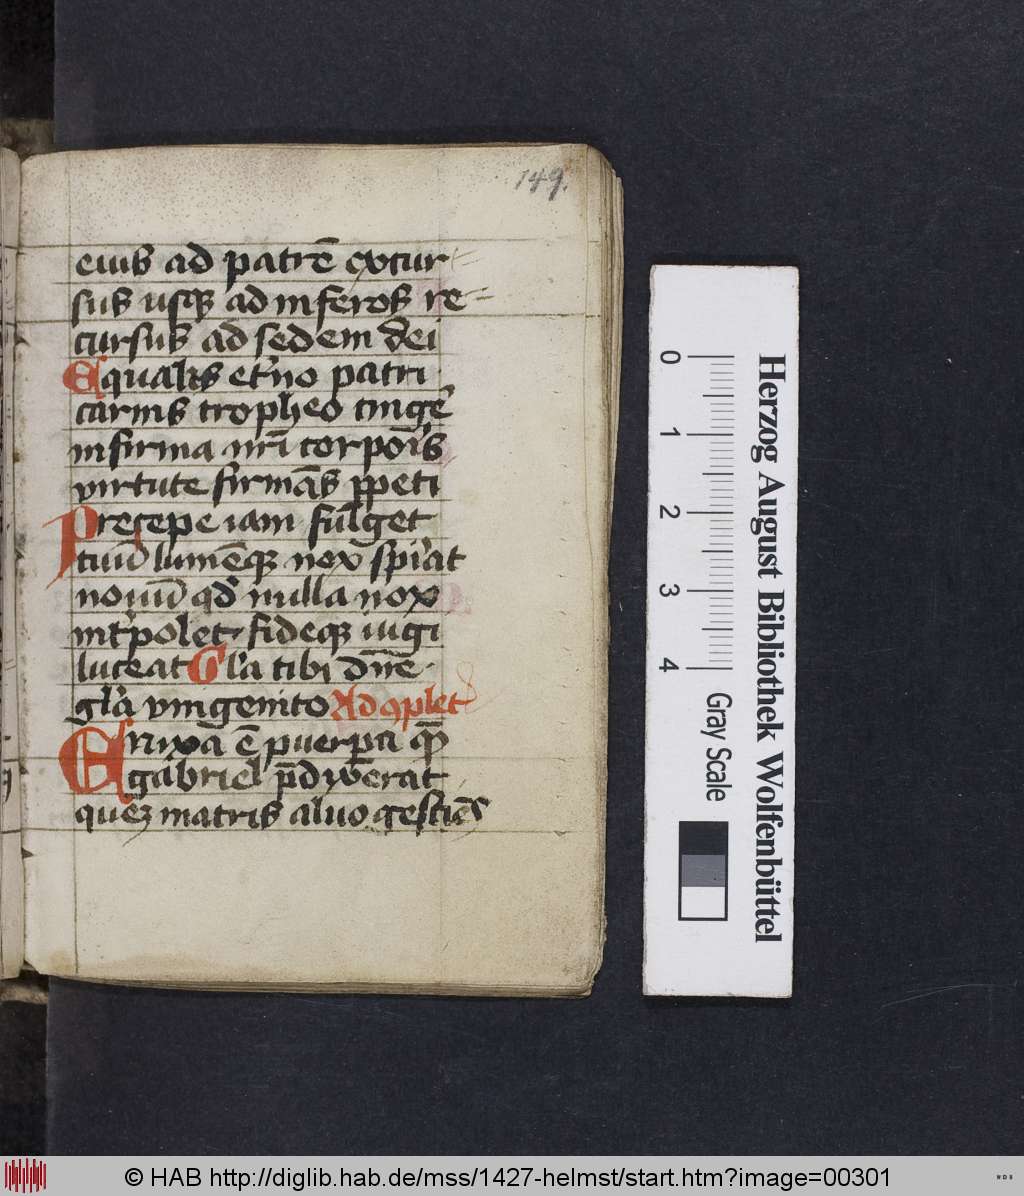 149.
eius ad patrē excur
sus usqꝫ ad inferos re=
cursus ad sedem dei
Equalis et'no patri
carnis tropheo cinge'
infirma nr̄i corpor̄is
virtute firmās ꝑpeti
Presepe iam fulget
tuū lumēqꝫ nox spirat
nouū qd' nulla nox
int'polet fideqꝫ iugi
luceat Gl'a tibi dn̄e
gl'a vnigenito Ad ꝯplet
Enixa ē puerpa quē
gabriel p̄dixerat
quez matris aluo gestiēs
Herzog August Bibliothek Wolfenbüttel
0 1 2 3 4
Gray Scale
© HAB http://diglib.hab.de/mss/1427-helmst/start.htm?image=00301